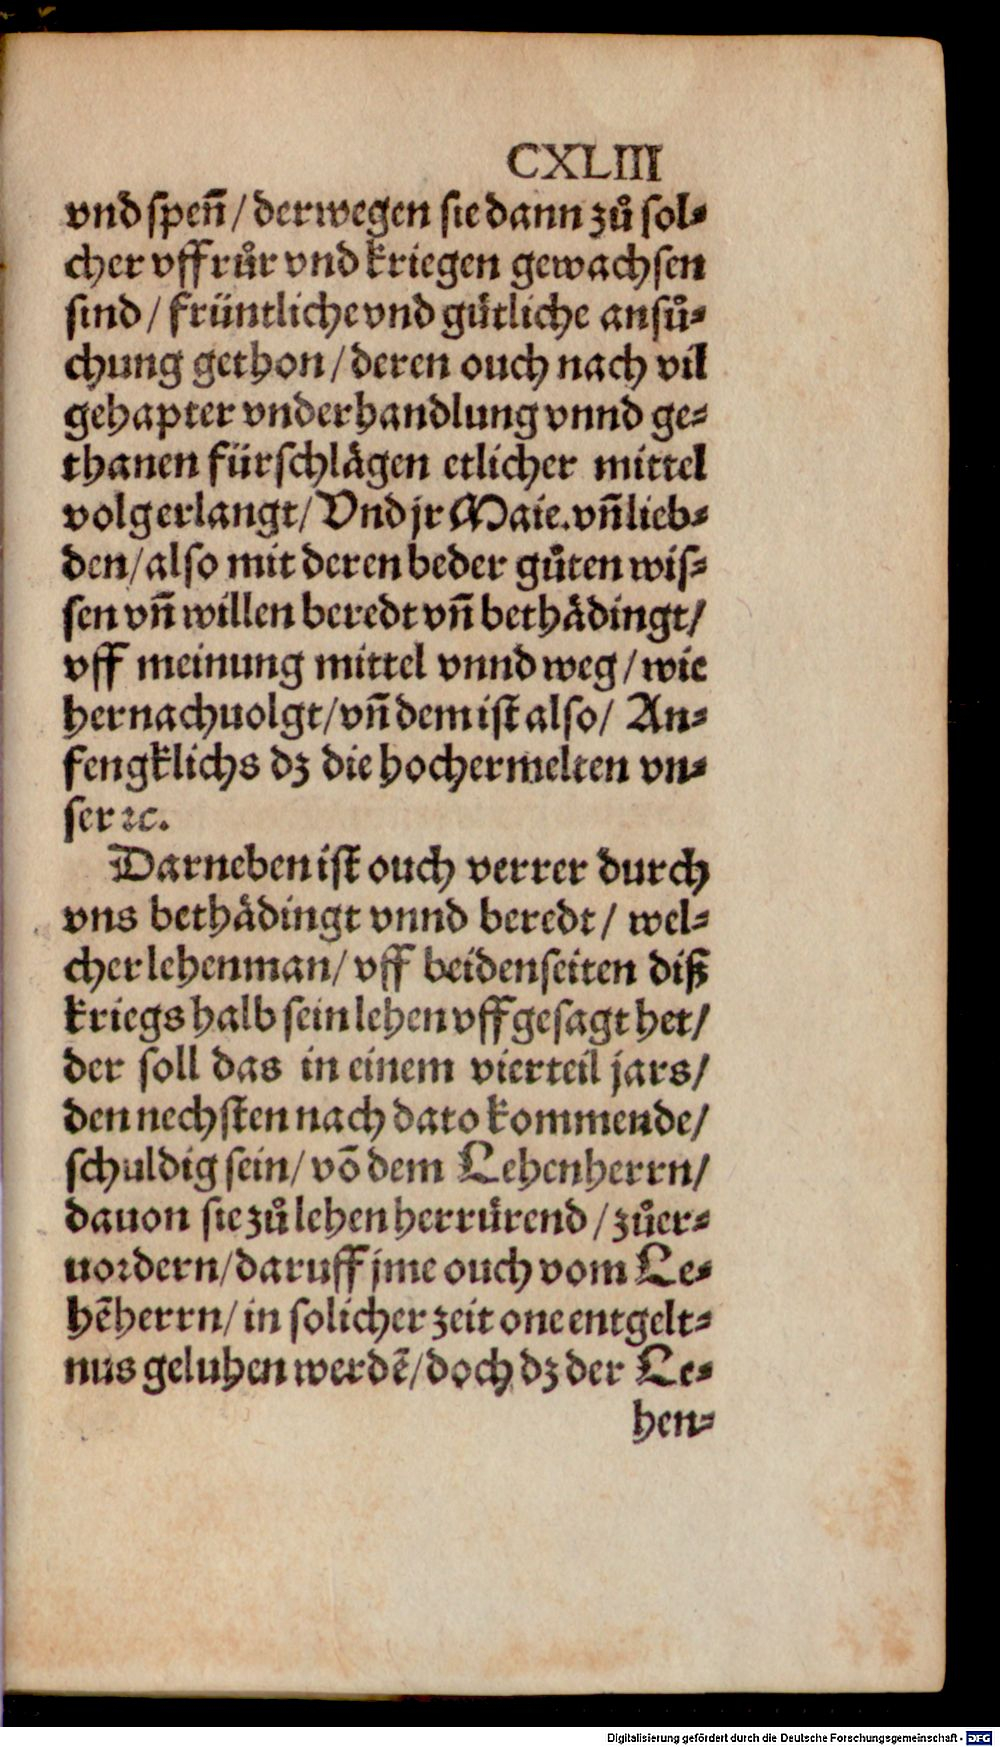 CXLIII
vnd speñ / derwegen sie dann zů sol⸗
cher vffrůr vnd kriegen gewachsen
sind / früntliche vnd gütliche ansů⸗
chung gethon / deren ouch nach vil
gehapter vnderhandlung vnnd ge⸗
thanen fürschlägen etlicher mittel
volg erlangt / Vnd jr Maie. vñ lieb⸗
den / also mit deren beder gůten wis⸗
sen vñ willen beredt vñ bethädingt /
vff meinung mittel vnnd weg / wie
hernachuolgt / vñ dem ist also / An⸗
fengklichs dz die hochermelten vn⸗
ser ⁊c.
Darneben ist ouch verrer durch
vns bethädingt vnnd beredt / wel⸗
cher lehenman / vff beidenseiten diß
kriegs halb sein lehen vffgesagt het /
der soll das in einem vierteil jars /
den nechsten nach dato kommende /
schuldig sein / võ dem Lehenherrn /
dauon sie zů lehen herrürend / zůer⸗
uordern / daruff jme ouch vom Le⸗
hẽherrn / in solicher zeit one entgelt⸗
nus geluhen werdẽ / doch dz der Le⸗
hen⸗
Digitalisierung gefördert durch die Deutsche Forschungsgemeinschaft - DFG